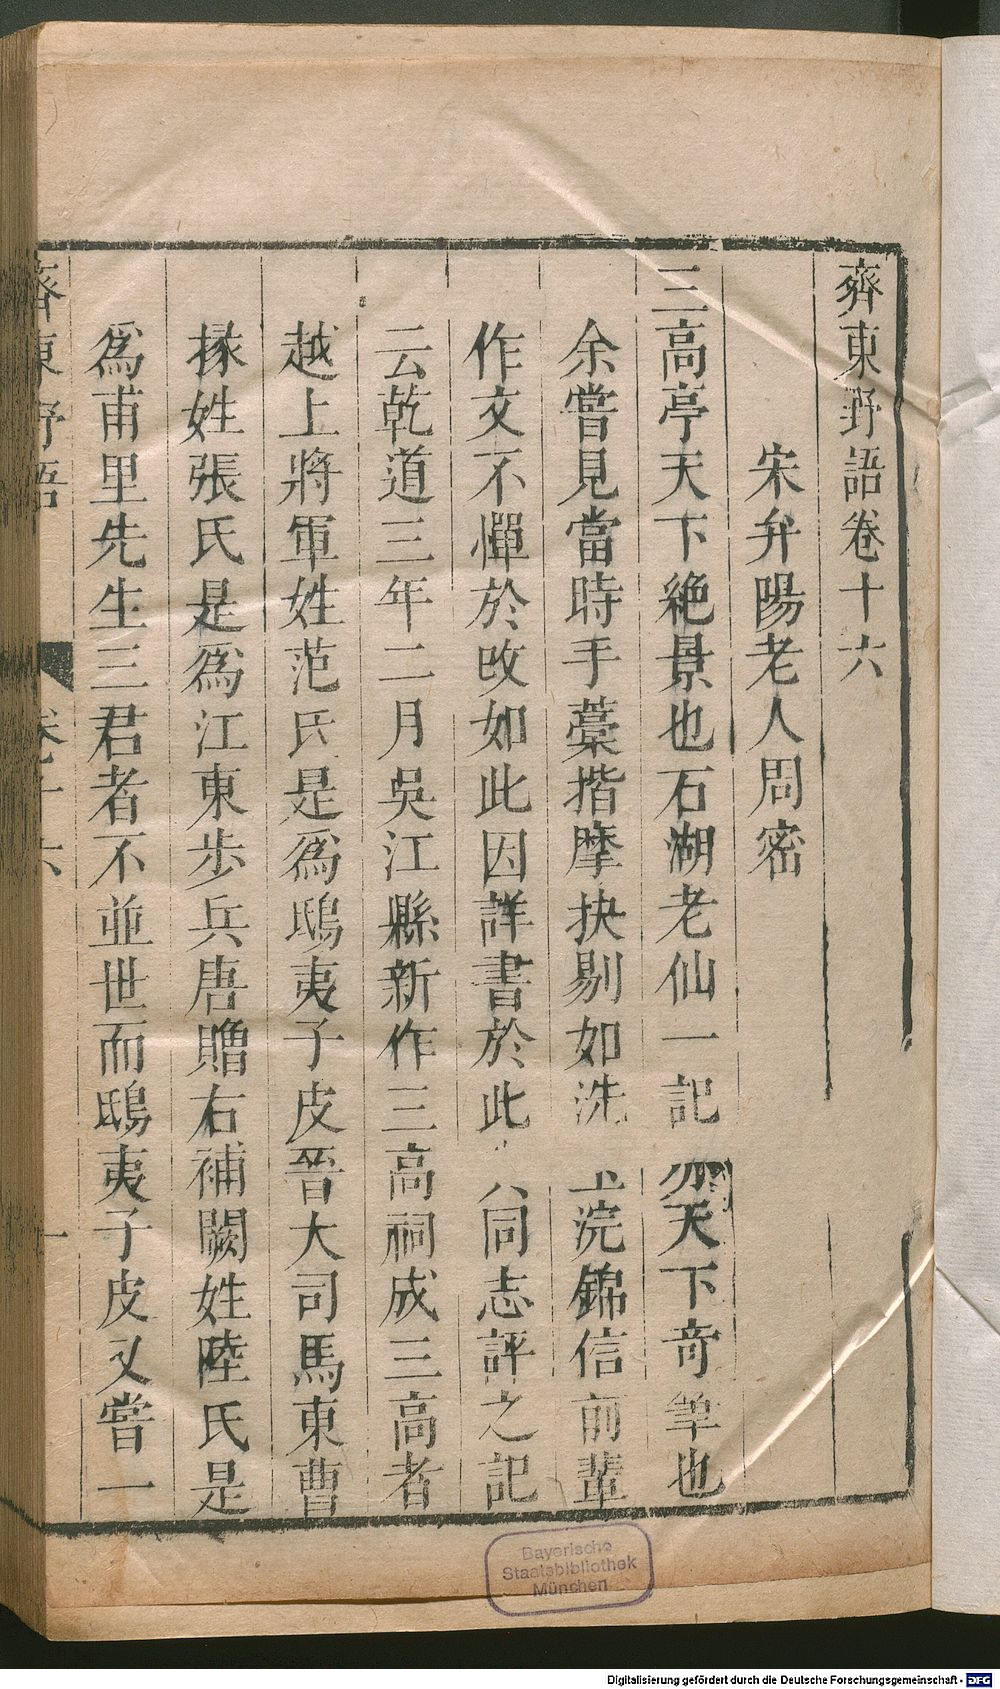 齊東野語卷十六
宋弁陽老人周密
三高亭天下絶景也石湖老仙一記 天下奇筆也
余嘗見當時手藁揩摩抉剔如洗 浣錦信前輩
作文不憚於改如此因詳書於此 同志評之記
云乾道三年二月吳江縣新作三高祠成三高者
越上將軍姓范氏是爲鴟夷子皮晉大司馬東曹
掾姓張氏是爲江東步兵唐贈右補闕姓陸氏是
爲甫里先生三君者不並世而鴟夷子皮又嘗一
齊東野語 卷十六 一
Bayerische
Staatsbibliothek
München
Digitalisierung gefördert durch die Deutsche Forschungsgemeinschaft - DFG